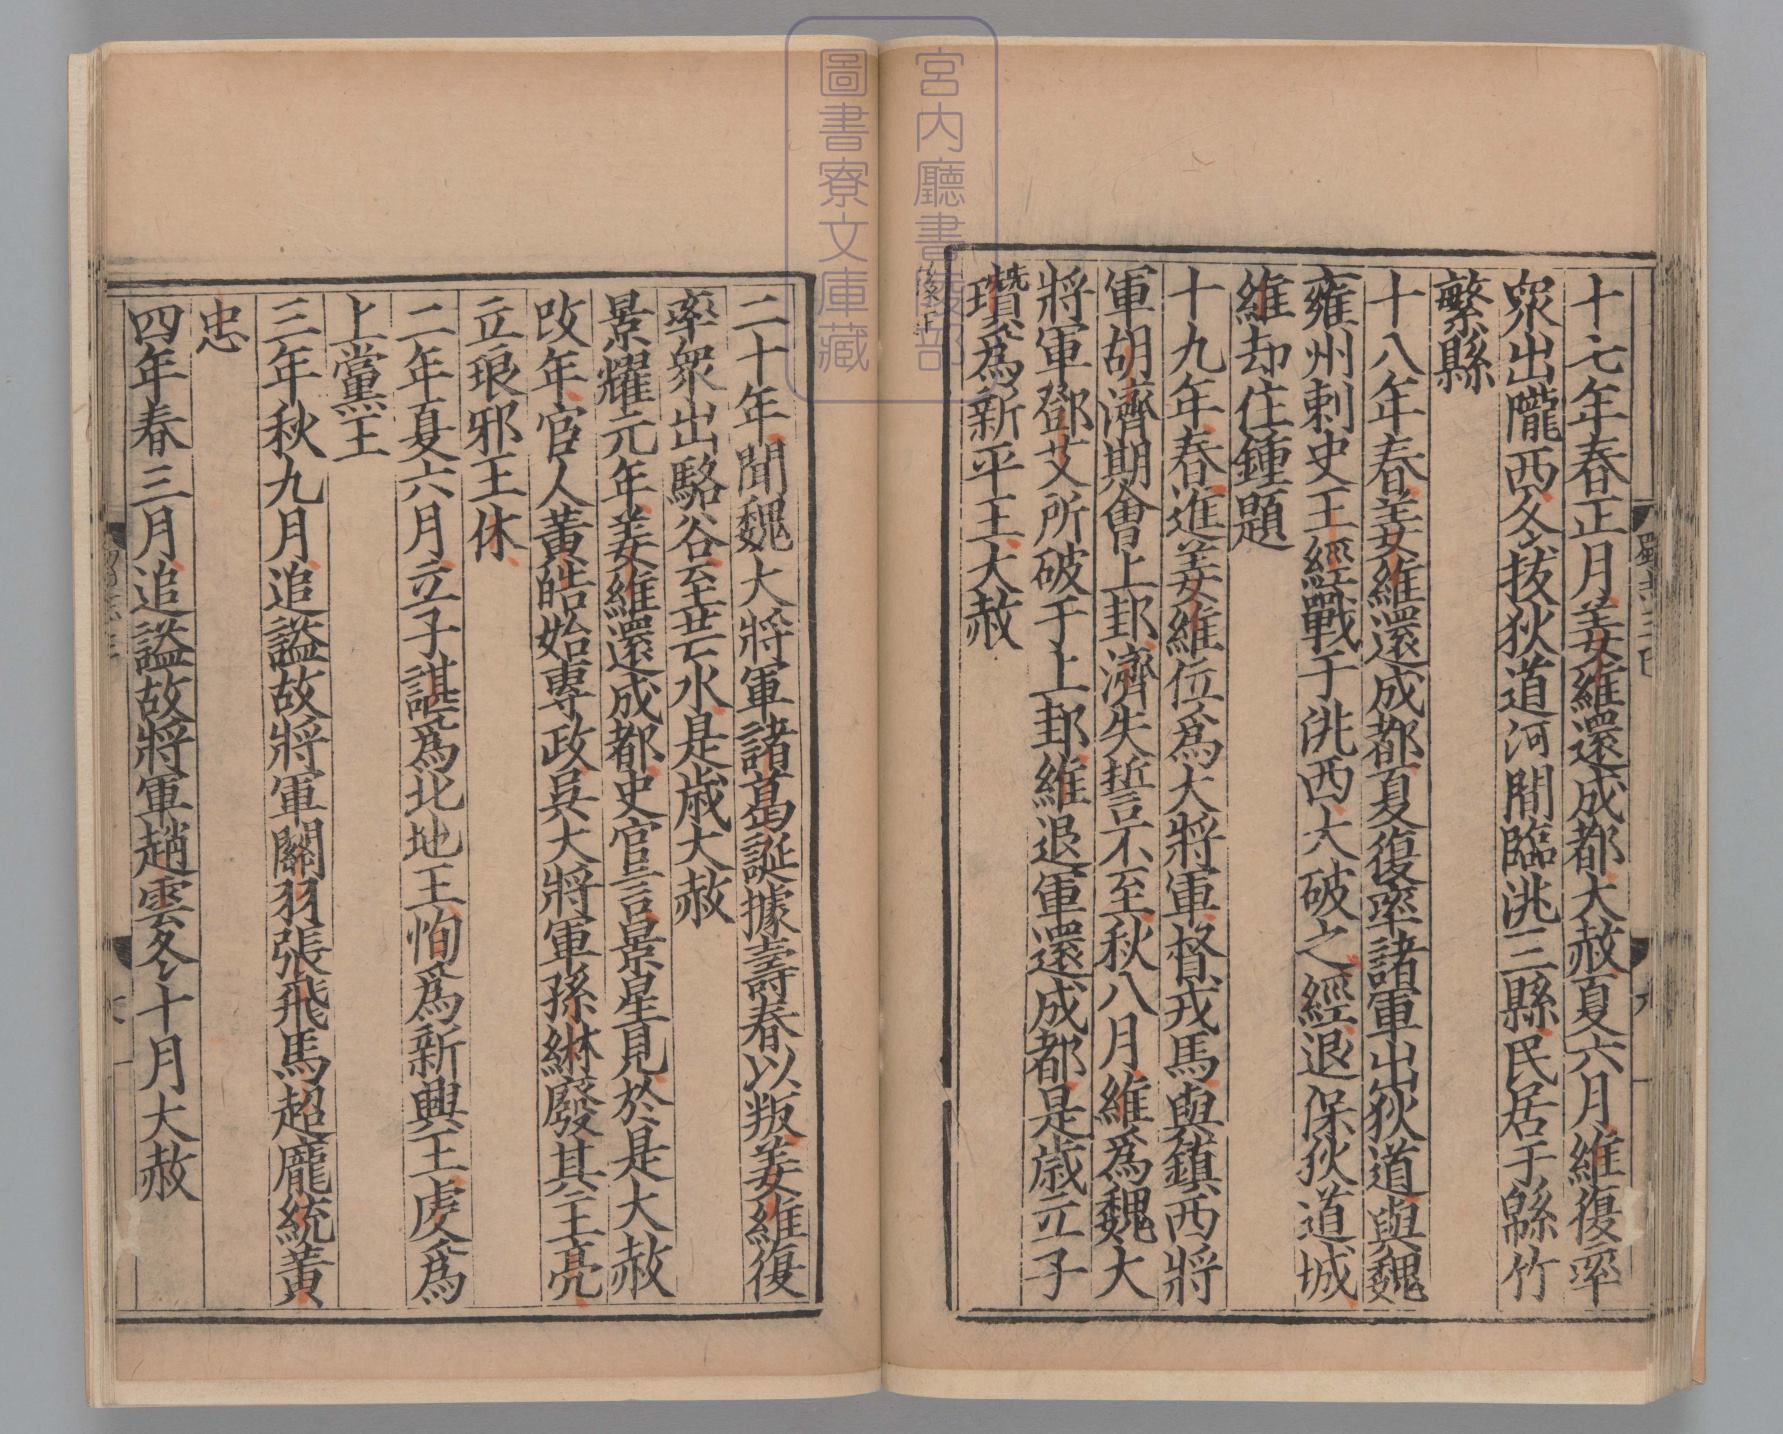 十七年春正月姜維還成都大赦夏六月維復率
衆出隴西冬拔狄道河閒臨洮三縣民居于緜竹
繁縣
十八年春姜維還成都夏復率諸軍出狄道與魏
雍州刺史王經戰于洮西大破之經退保狄道城
維却住鍾題
十九年春進姜維位爲大將軍督戎馬與鎮西將
軍胡濟期會上邽濟失誓不至秋八月維爲魏大
將軍鄧艾所破于上邽維退軍還成都是歲立子
瓚爲新平王大赦
二十年聞魏大將軍諸葛誕據壽春以叛姜維復
率衆出駱谷至芒水是歲大赦
景耀元年姜維還成都史官言景星見於是大赦
改年宦人黃皓始專政吳大將軍孫綝廢其主亮
立琅邪王休
二年夏六月立子諶爲北地王恂爲新興王虔爲
上黨王
三年秋九月追謚故將軍關羽張飛馬超龐統黃
忠
四年春三月追謚故將軍趙雲冬十月大赦
宮内廳書陵部
圖書寮文庫藏